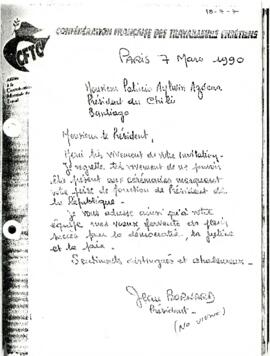 CONFÉDÉRATION FRANÇAISE DES TRAVAILLEURS CHRÉTIENS
CFTC
PARIS 7 Mars 1990
Monsieur Patricio Aylwin Azócar
Président du Chili
Santiago
Monsieur le Président,
Merci très vivement de votre invitation.
Je regrette très vivement de ne pouvoir
être présent aux cérémonies marquant
votre prise de fonction de Président de
la République.
Je vous adresse ainsi qu'à votre
équipe mes vœux fervents de plein
succès pour la démocratie, la justice
et la paix.
Sentiments distingués et chaleureux.
Jean BORNARD
Président
(NO VIENE)